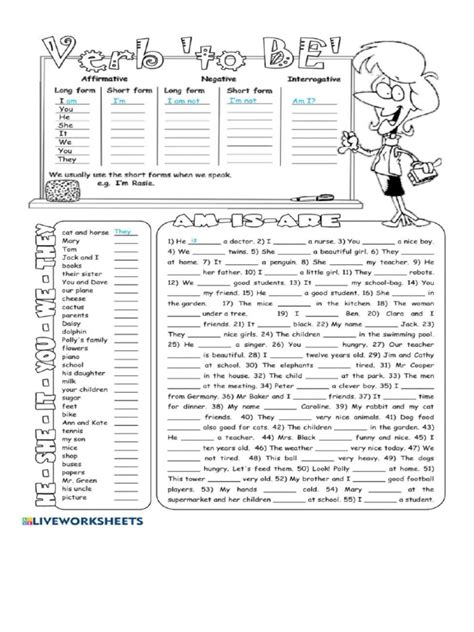 Verb 'to BE'
Affirmative Negative Interrogative
Long form Short form Long form Short form
I am I'm I am not I'm not Am I?
You
He
She
It
We
You
They
We usually use the short forms when we speak.
e.g. I'm Rosie.
HE - SHE - IT - YOU - WE - THEY
cat and horse They
Mary
Tom
Jack and I
books
their sister
You and Dave
our plane
cheese
cactus
parents
Daisy
dolphin
Polly's family
flowers
piano
school
his daughter
milk
your children
sugar
feet
bike
Ann and Kate
tennis
my son
mice
shop
buses
papers
Mr. Green
his uncle
picture
AM-IS-ARE
1) He is a doctor. 2) I ____ a nurse. 3) You ____ a nice boy.
4) We ____ twins. 5) She ____ a beautiful girl. 6) They ____
at home. 7) It ____ a penguin. 8) She ____ my teacher. 9) He
____ her father. 10) I ____ a little girl. 11) They ____ robots.
12) We ____ good students. 13) It ____ my school-bag. 14) You
____ my friend. 15) He ____ a good student. 16) We ____ in
the garden. 17) The mice ____ in the kitchen. 18) The woman
____ under a tree. 19) I ____ Ben. 20) Clara and I
____ friends. 21) It ____ black. 22) My name ____ Jack. 23)
They ____ nice girls. 24) We ____ children. 24) You ____ a
cook. 25) He ____ a singer. 26) You ____ hungry. 27) Our teacher
____ beautiful. 28) I ____ twelve years old. 29) Jim and Cathy
____ at school. 30) The elephants ____ tired. 31) Mr Cooper
____ in the house. 32) The child ____ at the park. 33) The men
____ at the meeting. 34) Peter ____ a clever boy. 35) I ____
from Germany. 36) Mr Baker and I ____ friends. 37) It ____ time
for dinner. 38) My name ____ Caroline. 39) My rabbit and my cat
____ friends. 40) They ____ very nice animals. 41) Dog food
____ also good for cats. 42) The children ____ in the garden. 43)
I ____ in the garden, too. 44) Mrs. Black ____ funny and nice. 45) I
____ ten years old. 46) The weather ____ very nice today. 47) We
____ not tired. 48) This ball ____ very heavy. 49) The dogs
____ hungry. Let's feed them. 50) Look! Polly ____ at home. 51)
This tower ____ very old. 52) My brother and I ____ good football
players. 53) My hands ____ cold. 54) Martha ____ at the
supermarket and her children ____ at school. 55) I ____ a student.
LIVEWORKSHEETS